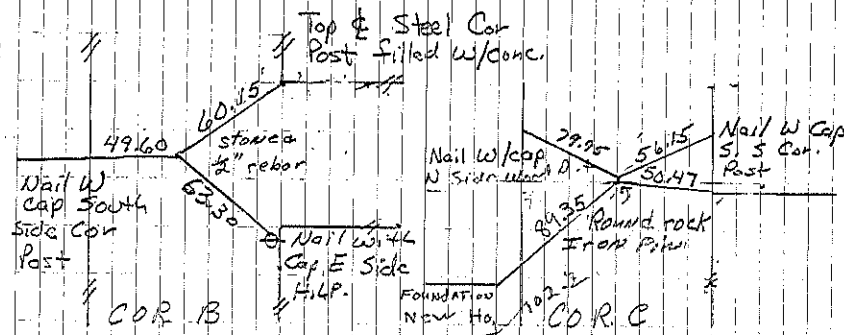 Top ₵ Steel Cor
Post filled w/conc.
60.15'
49.60
stone
1/2" rebar
63.30
Nail W
Cap South
Side Cor
Post
Nail with
Cap E Side
H.L.P.
COR B
79.95
56.15
Nail W Cap
S. S Cor.
Post
50.47
Nail W/cap
N Side Wood
89.35
Round rock
Iron Pin
FOUNDATION
New Ho.
102.
COR C